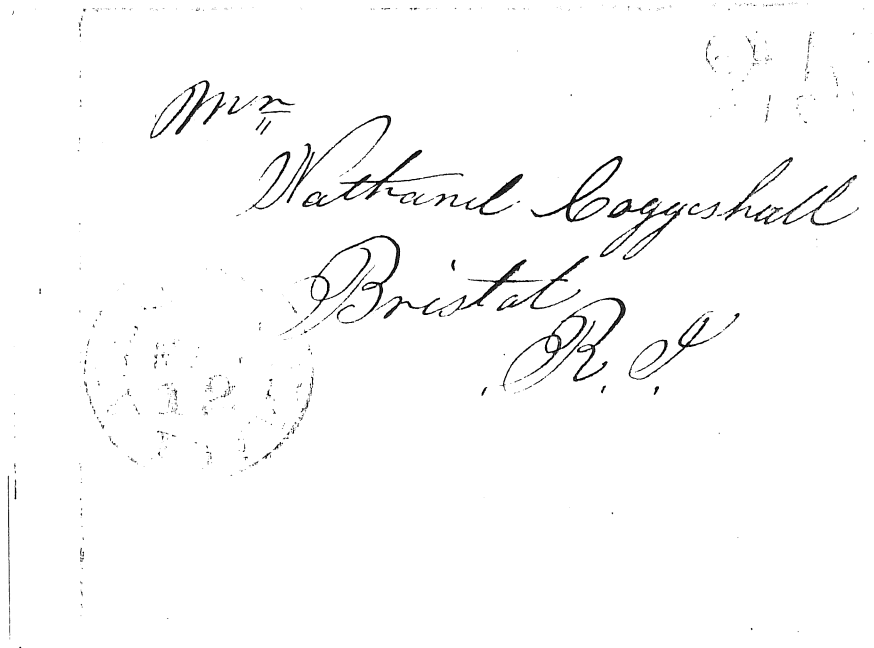 Mr
Nathaniel Coggeshall
Bristol
R. I.